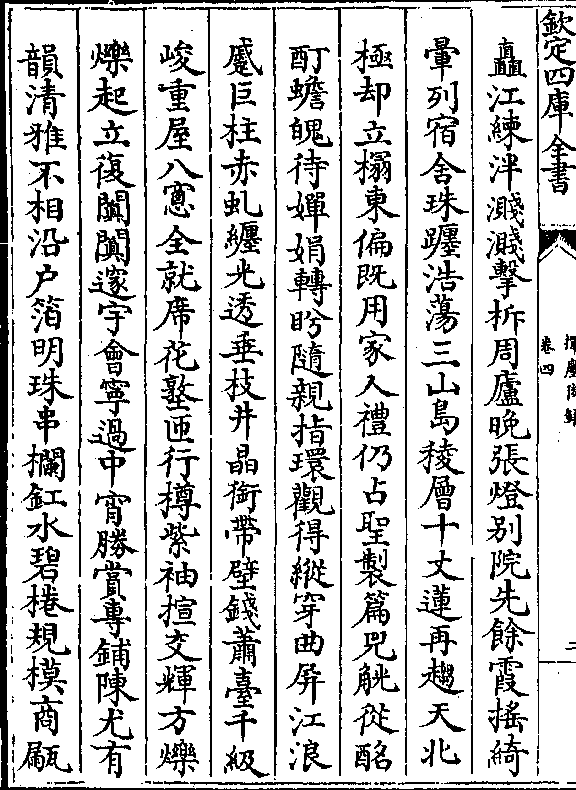 欽定四庫全書
卷四
矗江練泮濺濺擊柝周廬晚張燈别院先餘霞摇綺
暈列宿舍珠躔浩蕩三山島稜層十丈蓮再趨天北
極却立榻東偏既用家人禮仍占聖製篇兕觥從酩
酊蟾魄待嬋娟轉盻隨親指環觀得縱穿曲屏江浪
蹙巨柱赤虬纒光透垂枝井晶銜帶壁錢蕭臺千級
峻重屋八窻全就席花墪匝行樽紫袖揎交輝方爍
爍起立復闐闐邃宇會寧過中宵勝賞專鋪陳尤有
韻清雅不相沿户箔明珠串欄釭水碧棬規模商甗